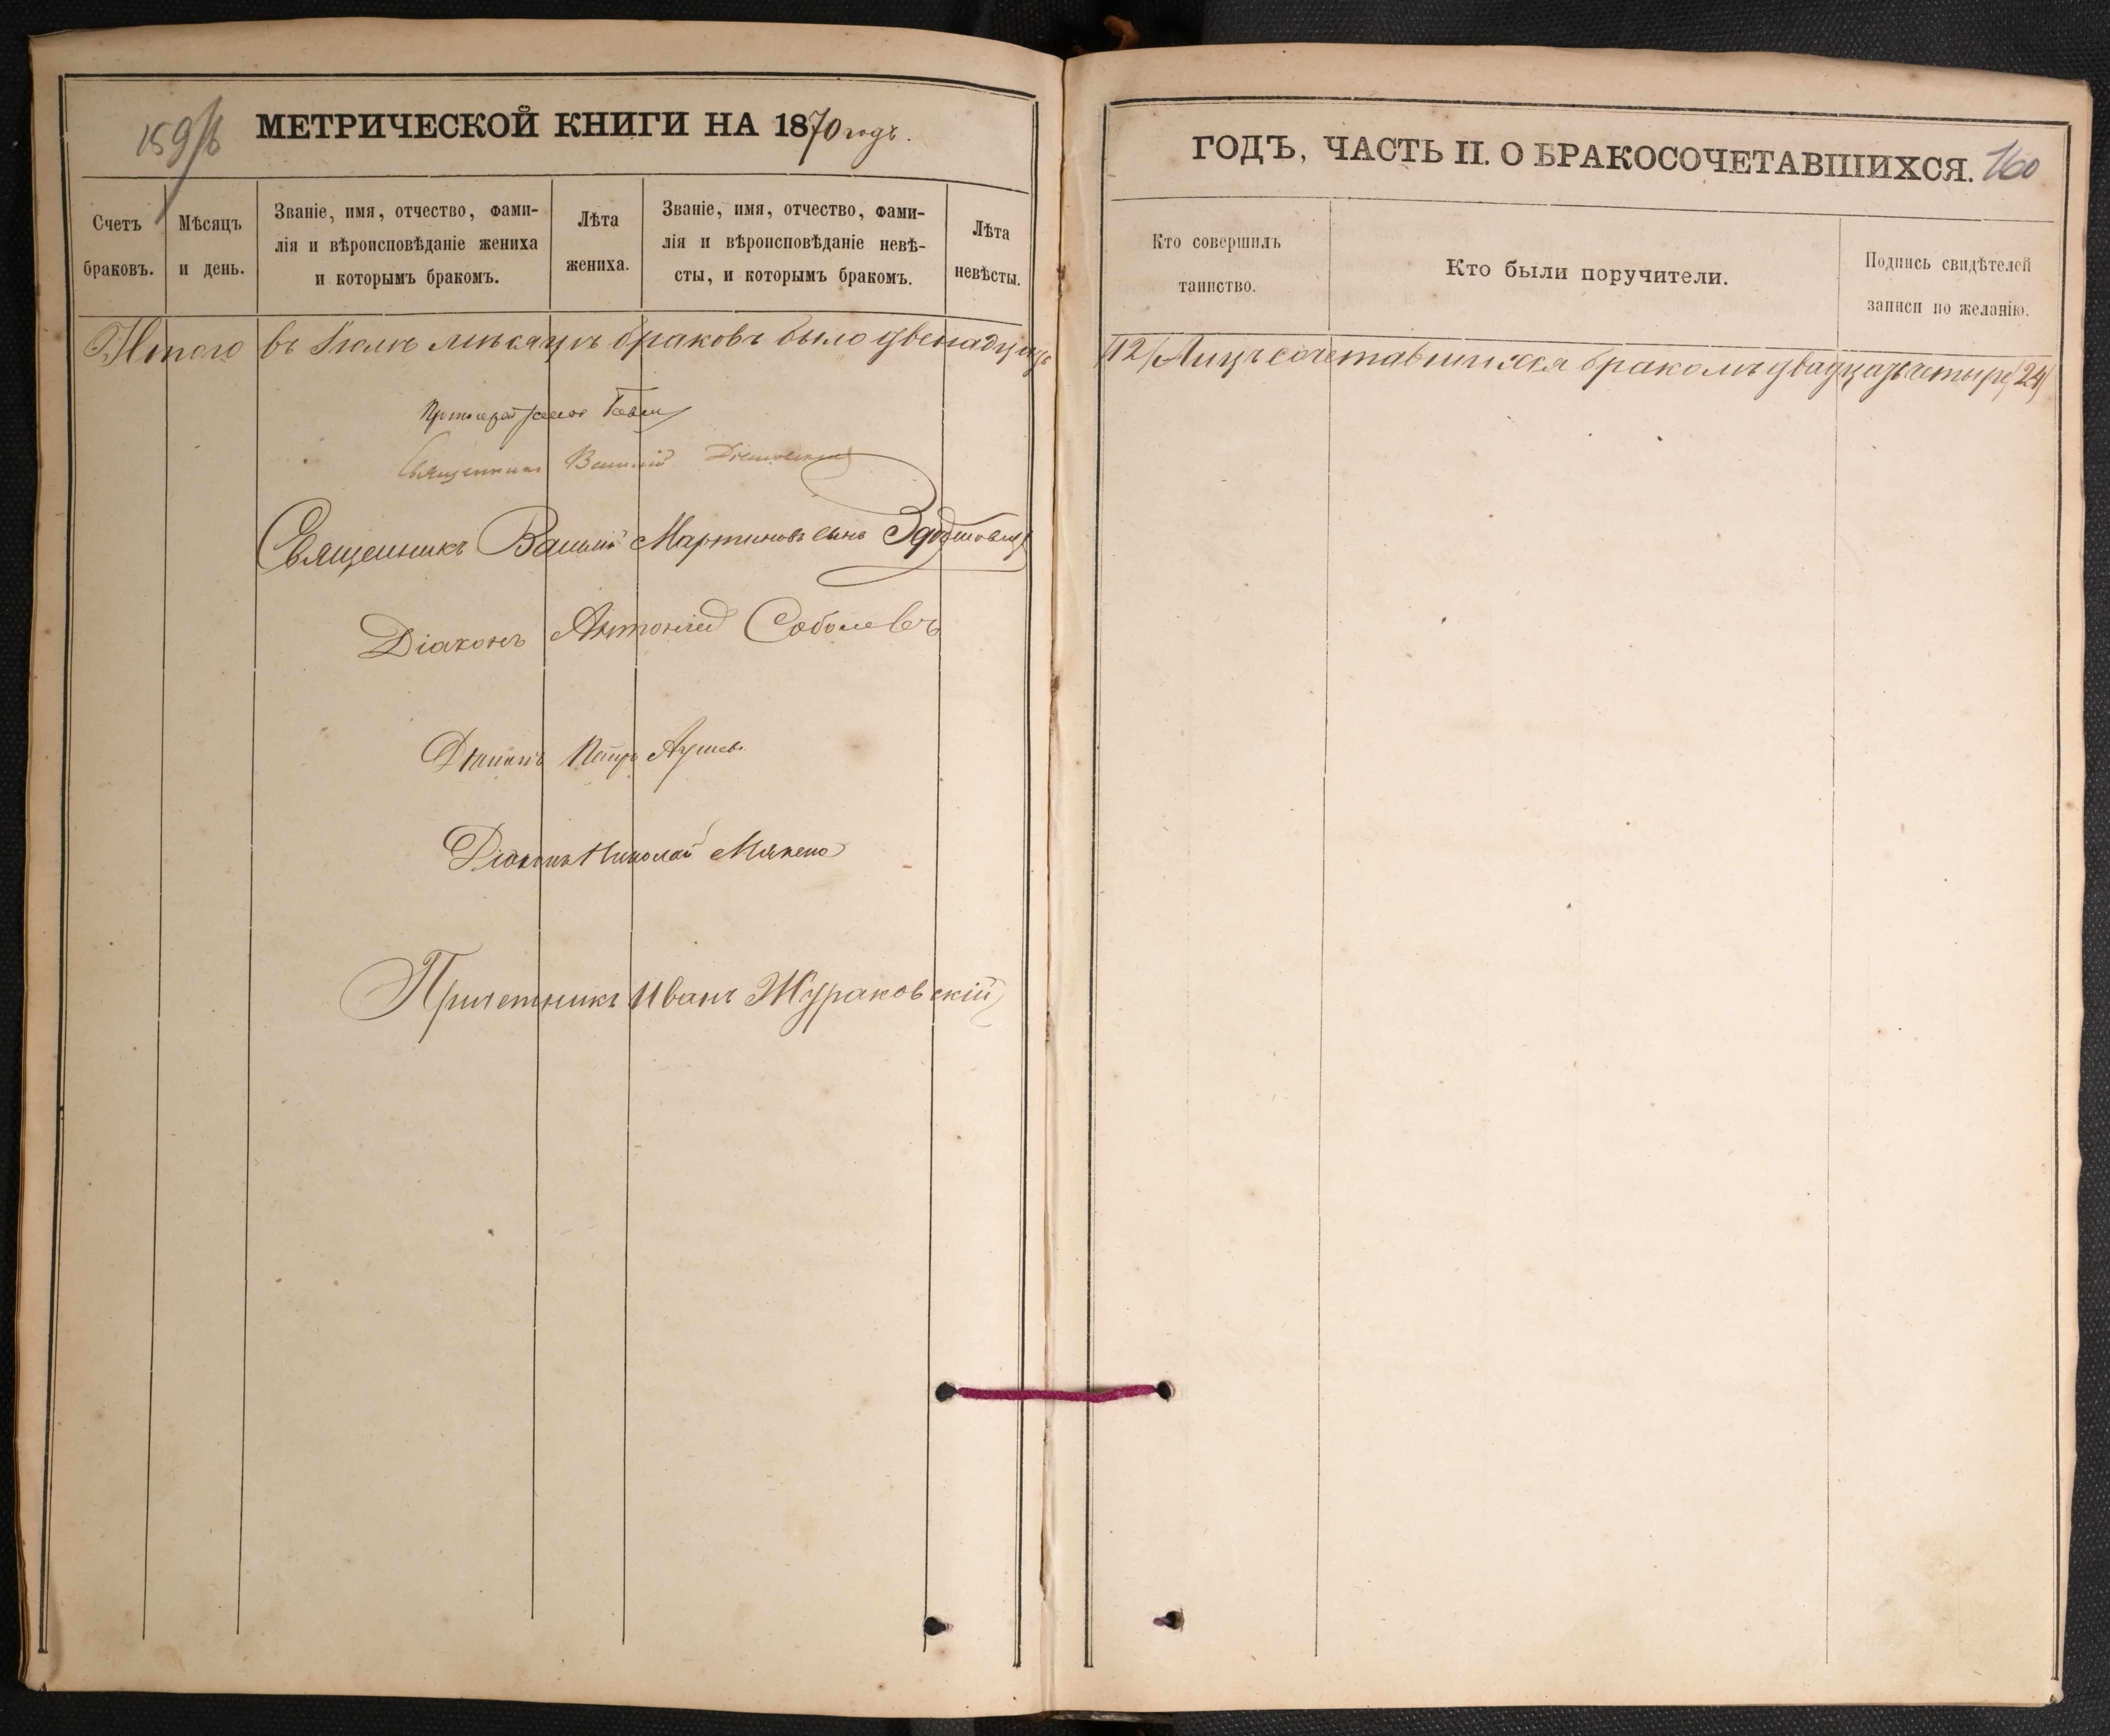 159 об
МЕТРИЧЕСКОЙ КНИГИ НА 1870 годъ.
Счетъ браковъ.
Мѣсяцъ и день.
Званіе, имя, отчество, фами-
лія и вѣроисповѣданіе жениха
и которымъ бракомъ.
Лѣта жениха.
Званіе, имя, отчество, фами-
лія и вѣроисповѣданіе невѣ-
сты, и которымъ бракомъ.
Лѣта невѣсты.
Итого въ Іюлѣ мѣсяцѣ браковъ было двенадцать
Протоіерей
Священникъ Василій
Священникъ Василій Мартиновъ сынъ
Діаконъ Антоній Соболевъ
Діаконъ Петръ
Діаконъ Николай
Причетникъ Иванъ Жураковскій
ГОДЪ, ЧАСТЬ II. О БРАКОСОЧЕТАВШИХСЯ. 160
Кто совершилъ
таинство.
Кто были поручители.
Подпись свидѣтелей
записи по желанію.
/12/ Лицъ сочетавшихся бракомъ двадцать четыре /24/